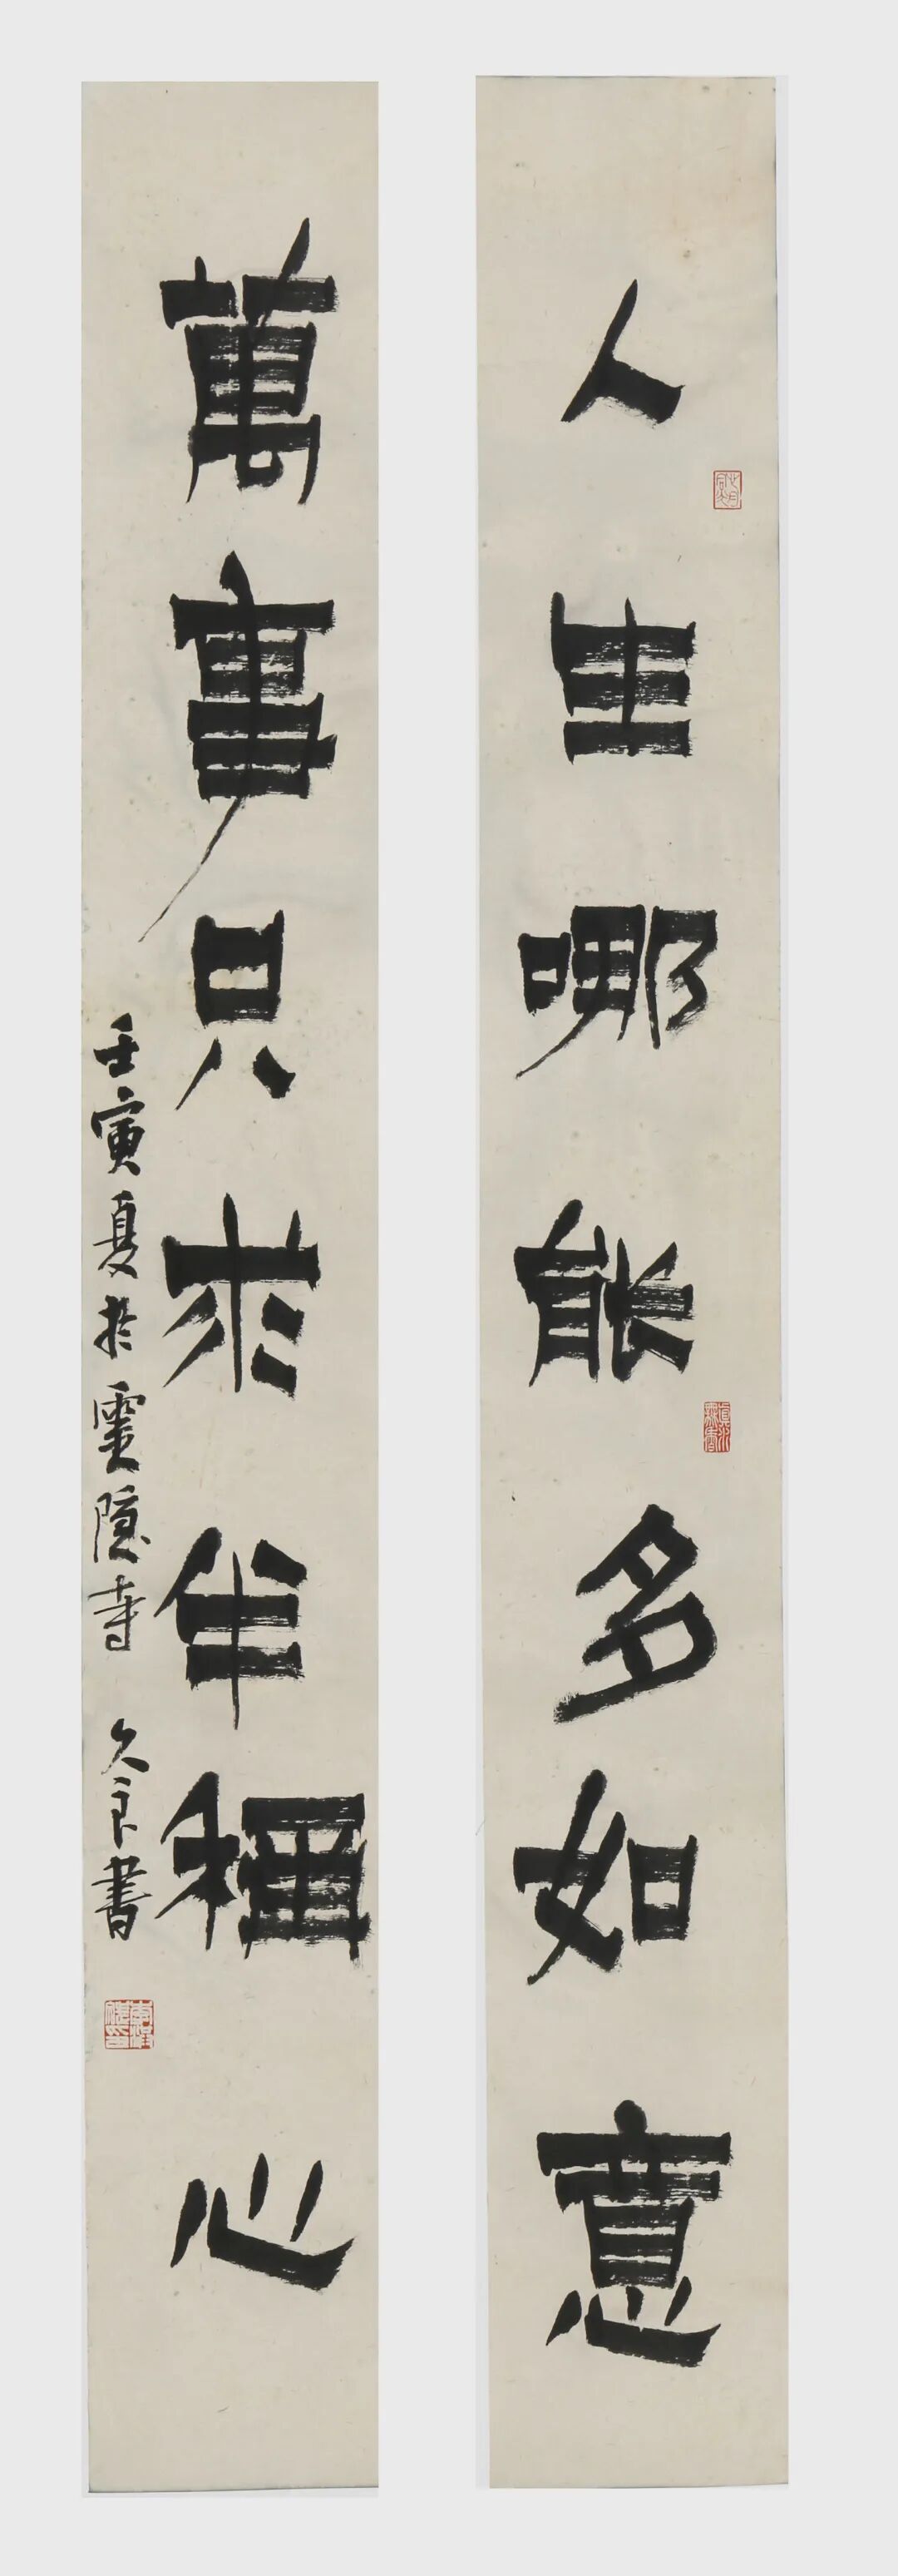 人生哪能多如意
萬事只求半稱心
壬寅夏於靈隱寺 久良書